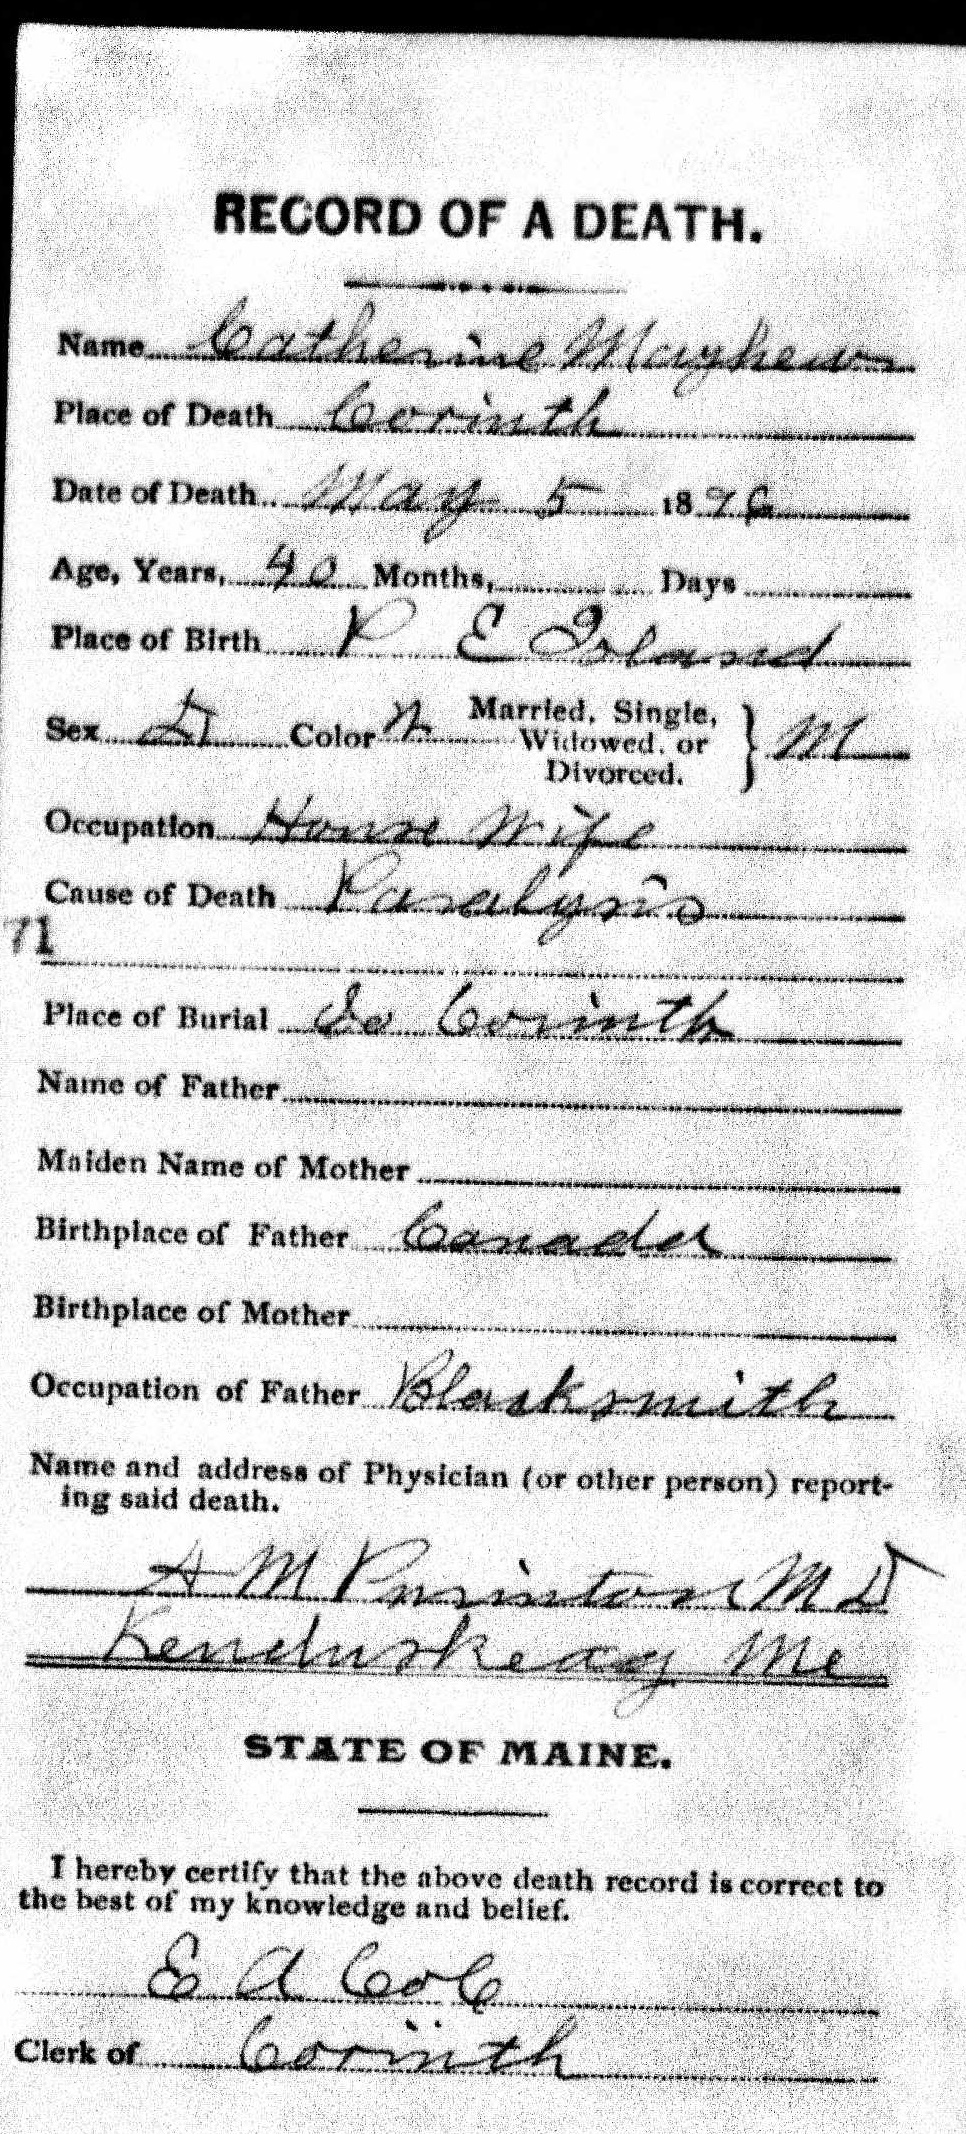 RECORD OF A DEATH.
Name Catherine Mayhew
Place of Death Corinth
Date of Death May 5 1896
Age, Years, 40 Months, Days
Place of Birth P E Island
Sex F Color W Married, Single, Widowed, or Divorced. } M
Occupation House Wife
Cause of Death Paralysis
71
Place of Burial So Corinth
Name of Father
Maiden Name of Mother
Birthplace of Father Canada
Birthplace of Mother
Occupation of Father Blacksmith
Name and address of Physician (or other person) report-
ing said death.
M Purinton M D
Kenduskeag Me
STATE OF MAINE.
I hereby certify that the above death record is correct to
the best of my knowledge and belief.
E A Cole
Clerk of Corinth